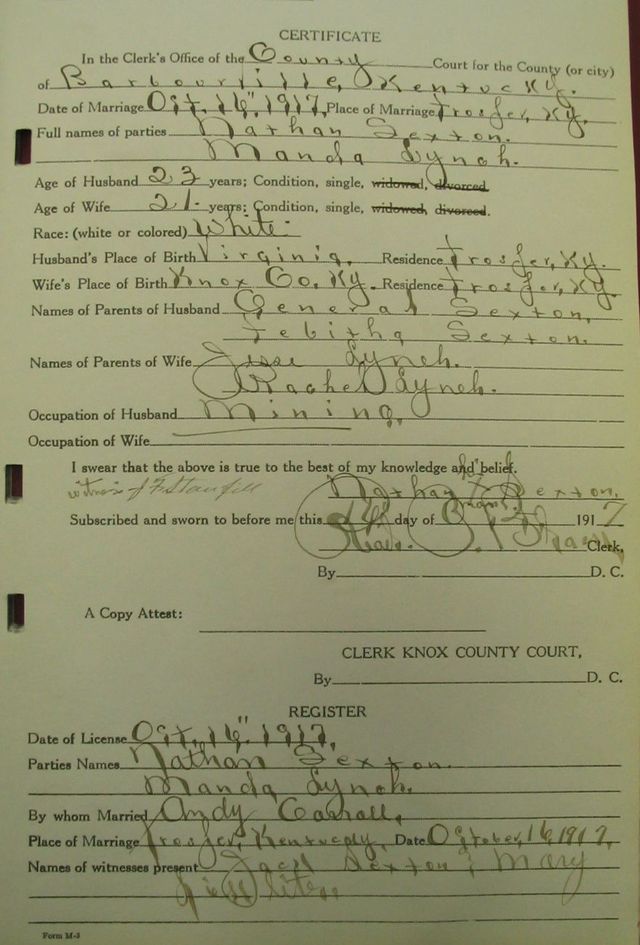 CERTIFICATE
In the Clerk's Office of the County Court for the County (or city)
of Barbourville, Kentucky.
Date of Marriage Oct. 16" 1917, Place of Marriage Trosper, Ky.
Full names of parties Nathan Sexton.
Manda Lynch.
Age of Husband 23 years; Condition, single, widowed, divorced
Age of Wife 21. years; Condition, single, widowed, divorced.
Race: (white or colored) White.
Husband's Place of Birth Virginia, Residence Trosper, Ky.
Wife's Place of Birth Knox Co. Ky. Residence Trosper, Ky.
Names of Parents of Husband General Sexton,
Tebitha Sexton.
Names of Parents of Wife Jesse Lynch.
Rachel Lynch.
Occupation of Husband Mining,
Occupation of Wife
I swear that the above is true to the best of my knowledge and belief.
his
witness J F Stanfill Nathan X Sexton.
mark
Subscribed and sworn to before me this day of 1917
Clerk,
By D. C.
A Copy Attest:
CLERK KNOX COUNTY COURT,
By D. C.
REGISTER
Date of License Oct. 16" 1917,
Parties Names Nathan Sexton.
Manda Lynch.
By whom Married Andy Carroll,
Place of Marriage Trosper, Kentucky, Date October, 16 1917,
Names of witnesses present Jack Sexton & Mary
Form M-3